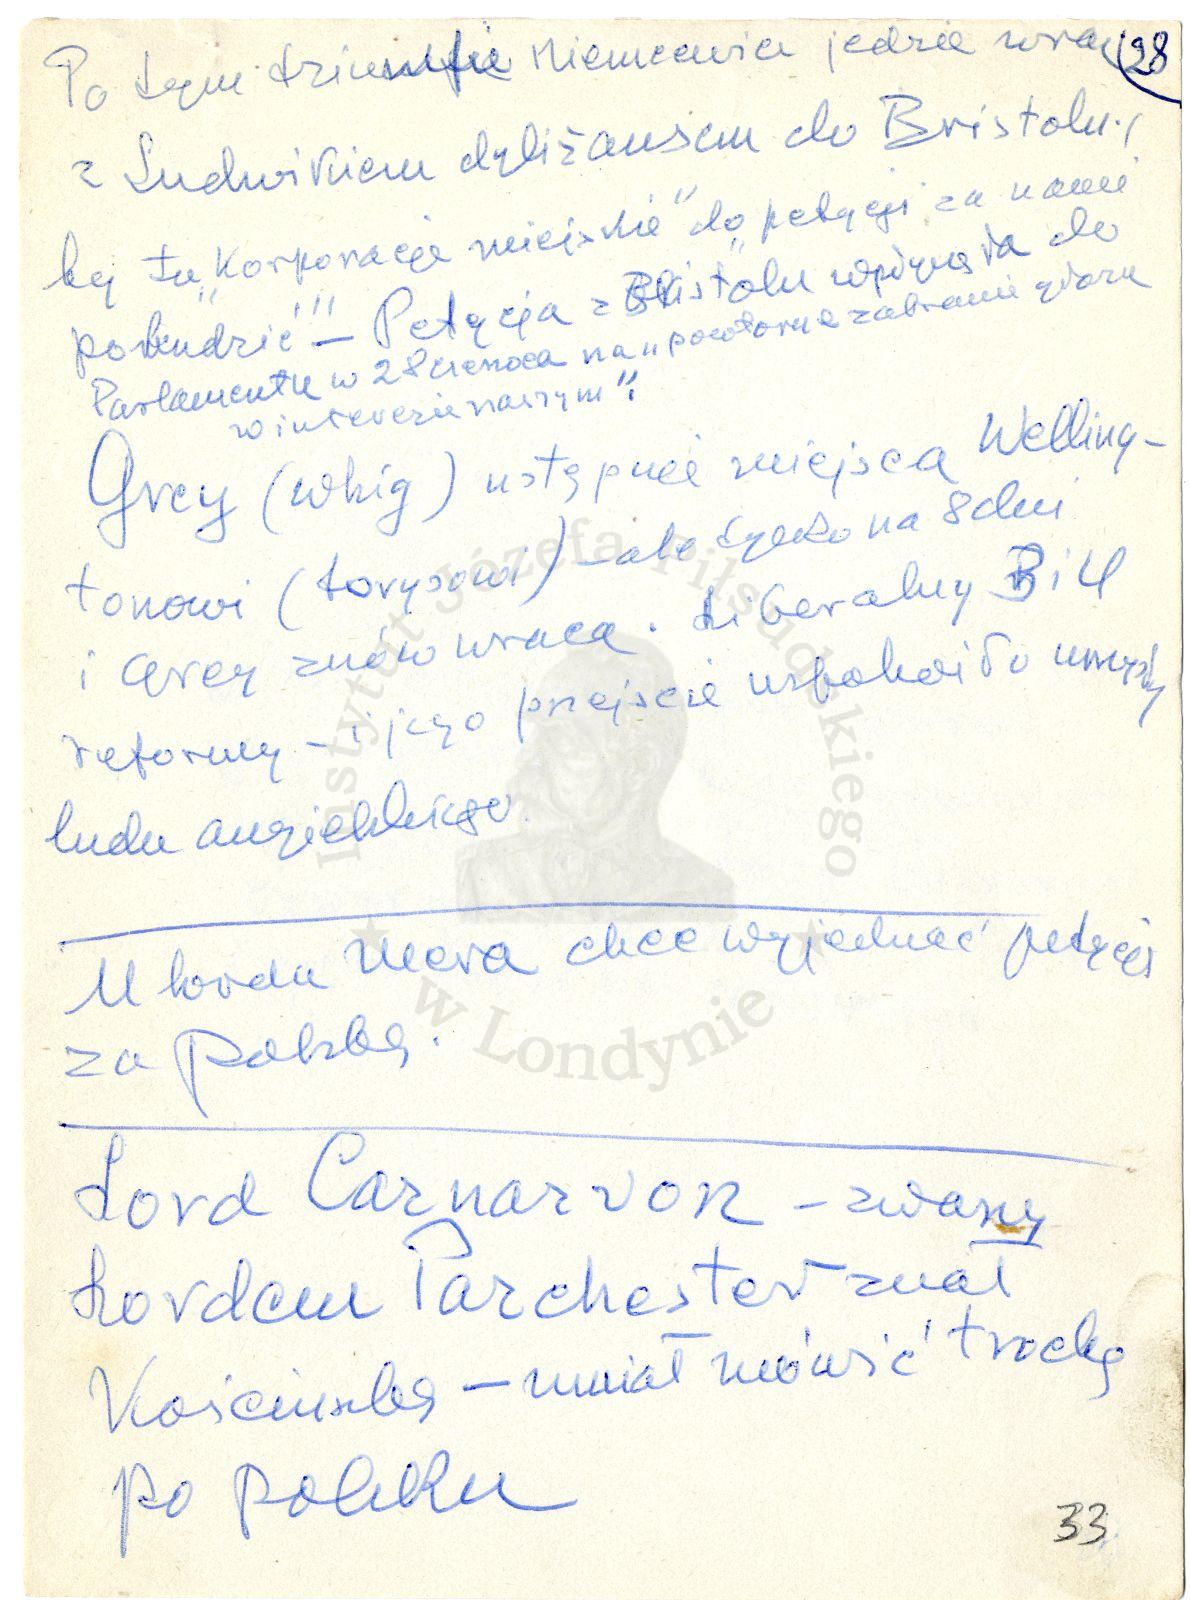 28
Po tym triumfie Niemcewicz jedzie wraz
z Ludwikiem dyliżansem do Bristolu,
by tu "Korporacje miejskie" do "petycji za nami
pobudzić"!!! – Petycja z Bristolu wpłynęła do
Parlamentu w 28 czerwca na "powtórne zabranie głosu
w interesie naszym".
Grey (whig) ustępuje miejsca Welling-
tonowi (torysowi) – ale tylko na 8 dni
i Grey znów wraca. Liberalny Bill
reformy – i jego przejście uspokoiło umysły
ludu angielskiego.
U lorda Mera chce wyjednać petycję
za Polską.
Lord Carnarvon – zwany
Lordem Parchester znał
Kościuszkę – umiał mówić trochę
po polsku
33
Instytut Józefa Piłsudskiego
w Londynie